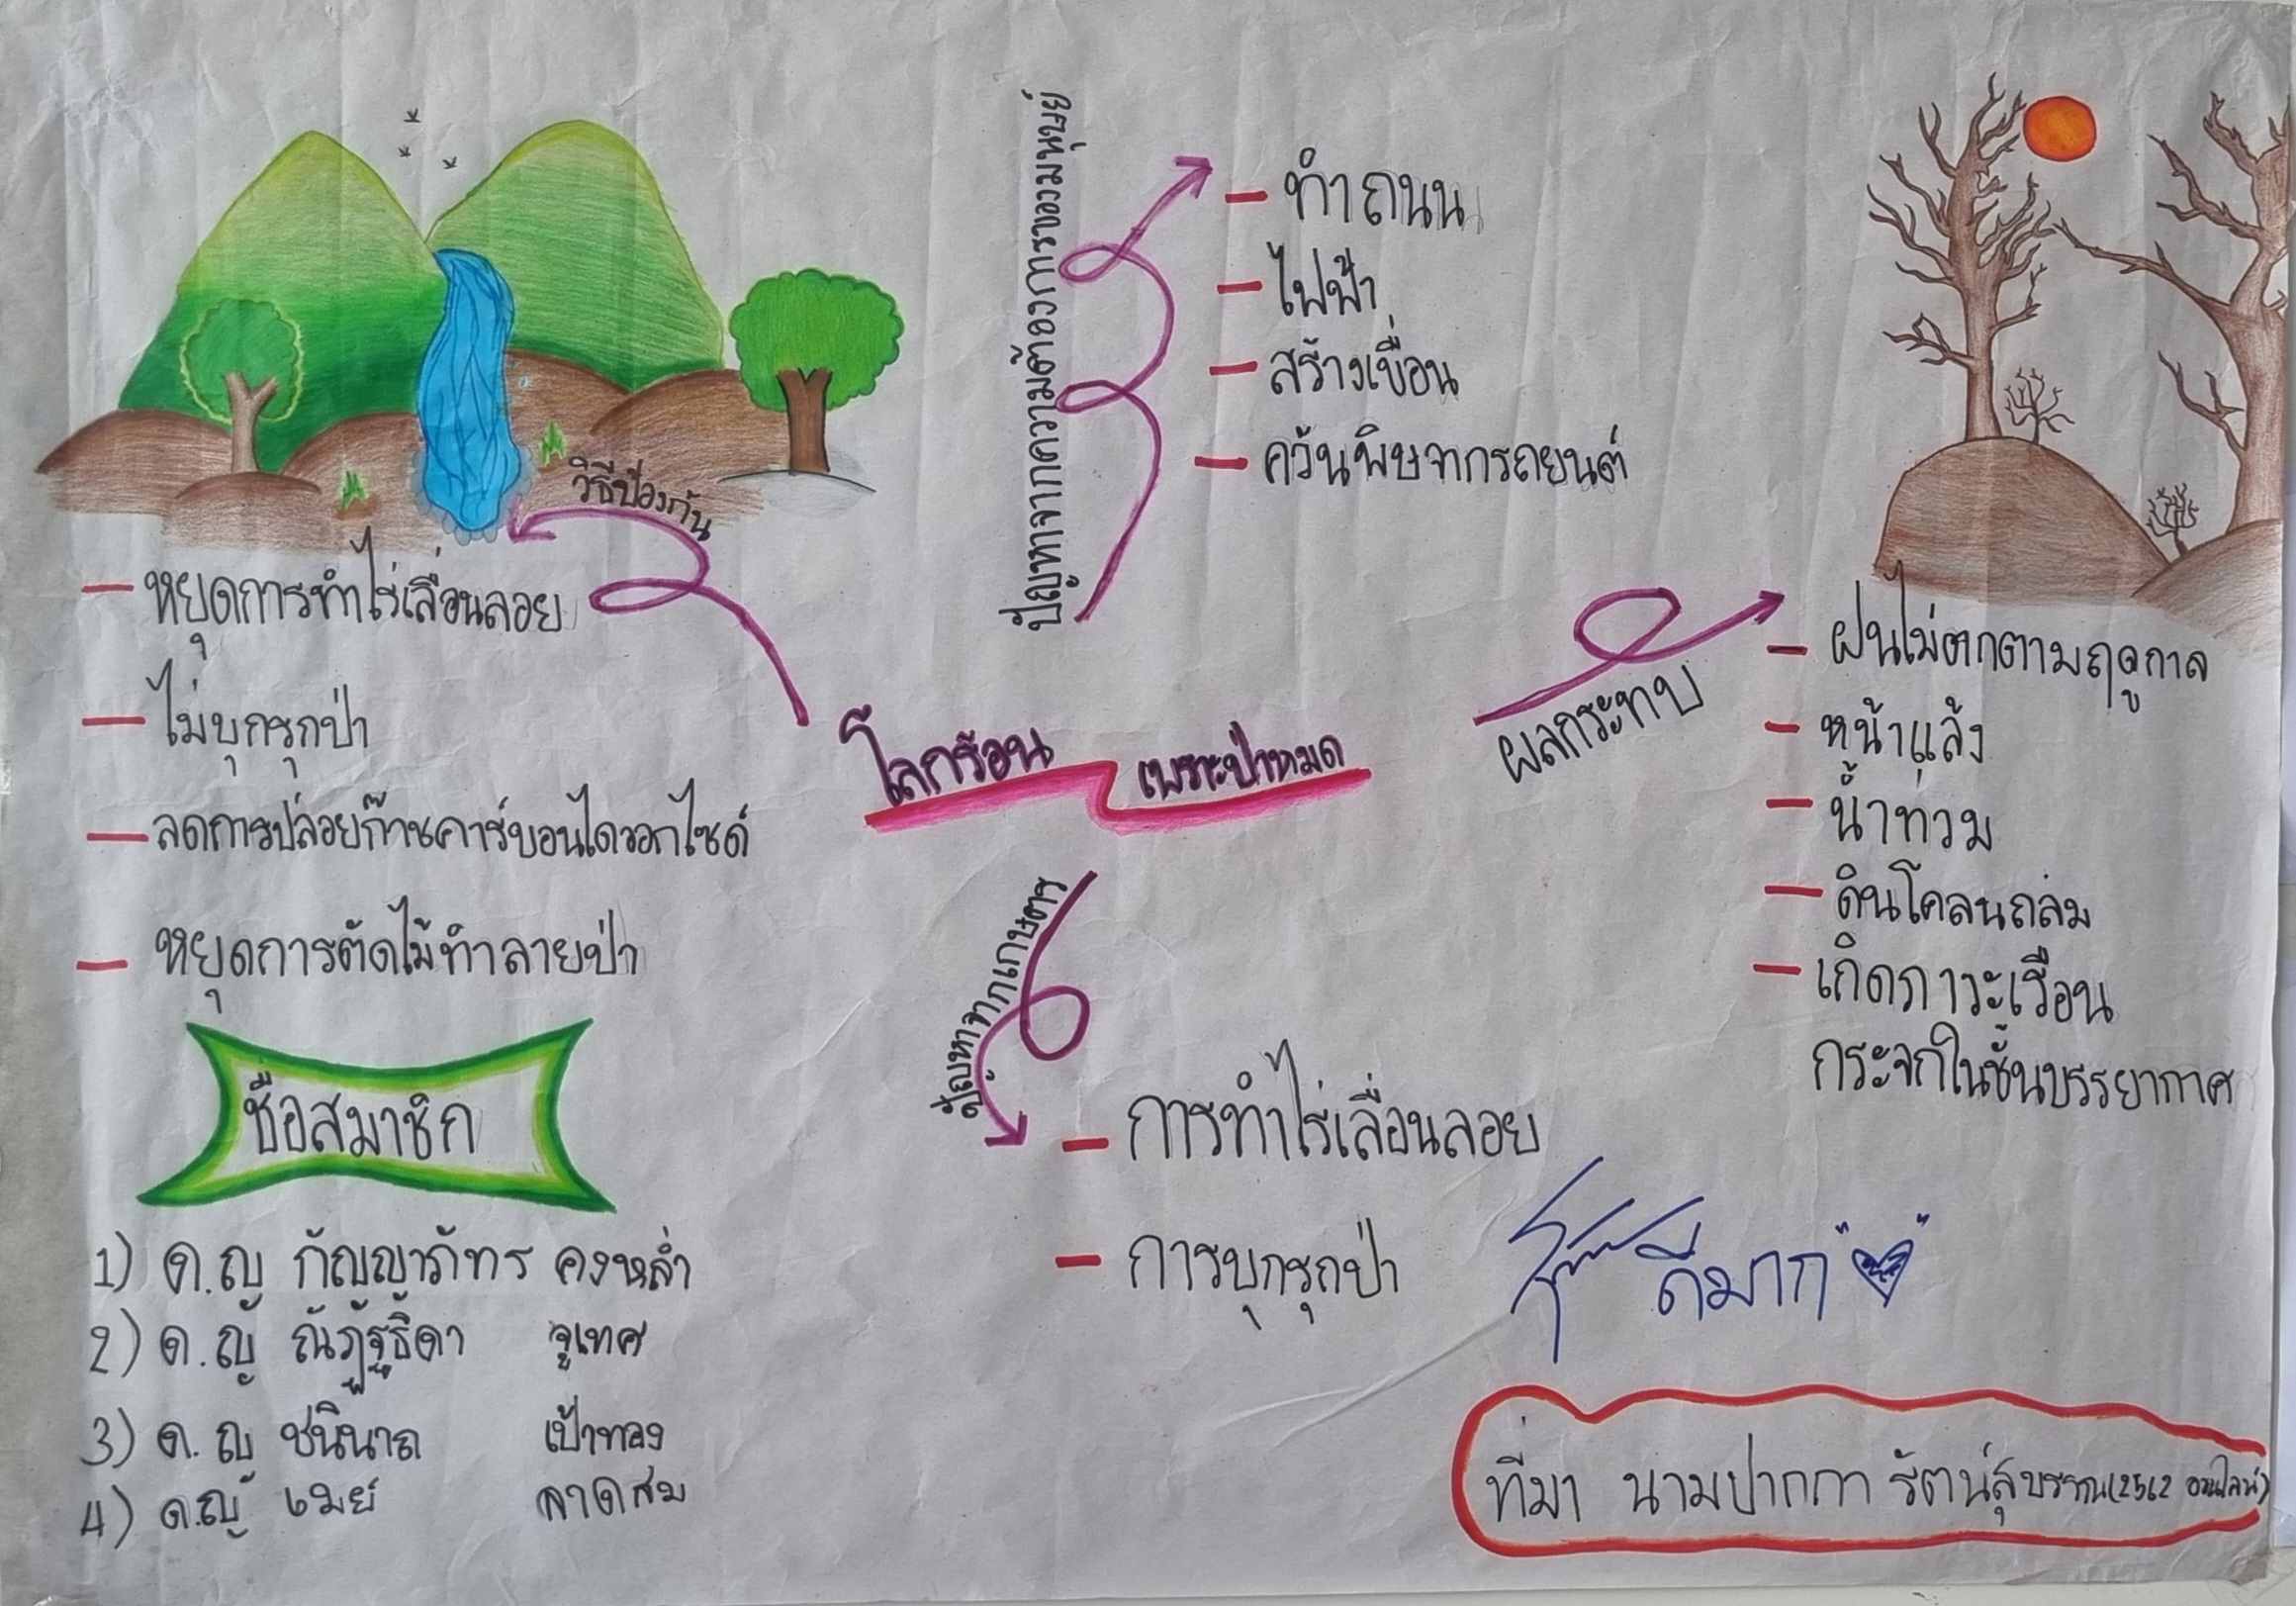 ปัญหาจากความต้องการของมนุษย์
- ทำถนน
- ไฟฟ้า
- สร้างเขื่อน
- ควันพิษจากรถยนต์
วิธีป้องกัน
- หยุดการทำไร่เลื่อนลอย
- ไม่บุกรุกป่า
- ลดการปล่อยก๊าซคาร์บอนไดออกไซด์
- หยุดการตัดไม้ทำลายป่า
โลกร้อน เพราะป่าหมด
ผลกระทบ
- ฝนไม่ตกตามฤดูกาล
- หน้าแล้ง
- น้ำท่วม
- ดินโคลนถล่ม
- เกิดภาวะเรือน
กระจกในชั้นบรรยากาศ
ปัญหาจากเกษตร
- การทำไร่เลื่อนลอย
- การบุกรุกป่า
ดีมาก
ชื่อสมาชิก
1) ด.ญ กัญญาภัทร คงหล่ำ
2) ด.ญ ณัฏฐธิดา จูเทศ
3) ด.ญ ชนินาถ เป้าทอง
4) ด.ญ เมย์ ลาดสม
ที่มา นามปากกา รัตน์สุบรรณ(2562 ออนไลน์)